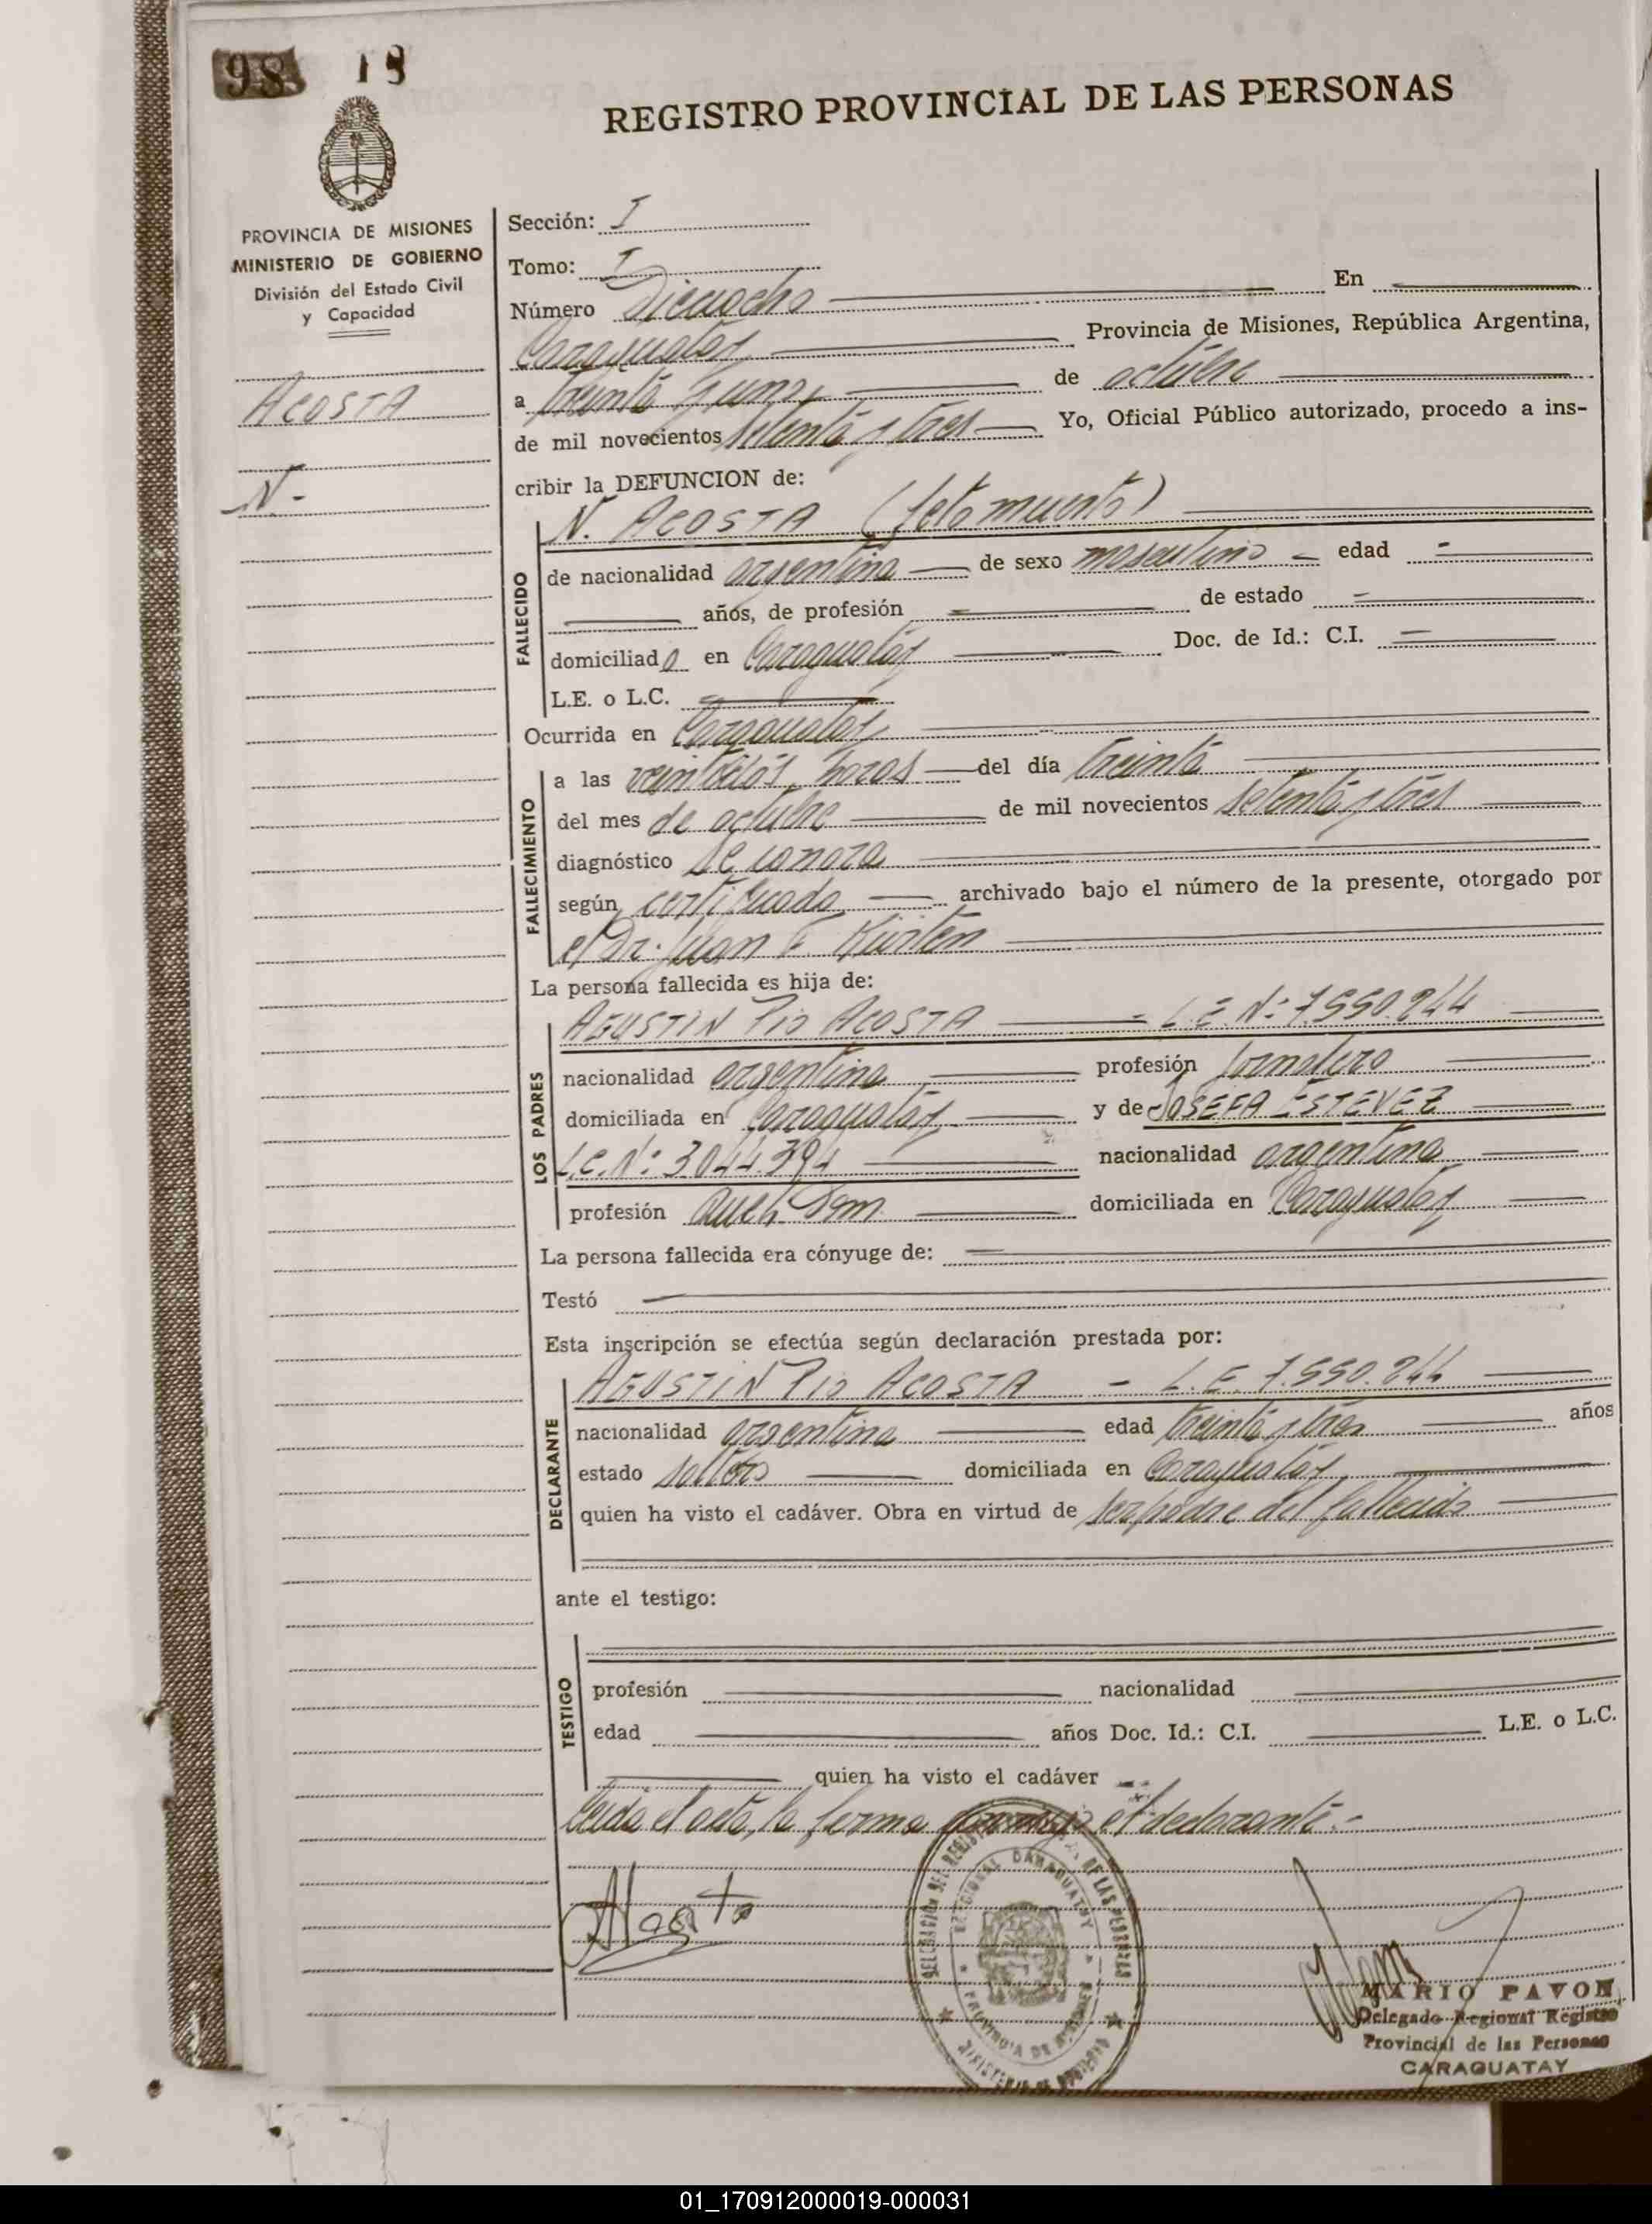 98 18
REGISTRO PROVINCIAL DE LAS PERSONAS
PROVINCIA DE MISIONES
MINISTERIO DE GOBIERNO
División del Estado Civil
y Capacidad
ACOSTA
N-
Sección: I
Tomo: I
Número Dieciocho En
Caraguatay Provincia de Misiones, República Argentina,
a treinta y uno, de octubre
de mil novecientos setenta y tres Yo, Oficial Público autorizado, procedo a ins-
cribir la DEFUNCION de:
N. ACOSTA (feto muerto)
FALLECIDO
de nacionalidad argentina de sexo masculino edad -
años, de profesión de estado
domiciliado en Caraguatay Doc. de Id.: C.I.
L.E. o L.C.
Ocurrida en Caraguatay
FALLECIMIENTO
a las veintidós horas del día treinta
del mes de octubre de mil novecientos setenta y tres
diagnóstico se ignora
según certificado archivado bajo el número de la presente, otorgado por
el Dr. Juan F.
La persona fallecida es hija de:
LOS PADRES
AGUSTIN PIO ACOSTA - L.E. Nº 7.550.244
nacionalidad argentina profesión jornalero
domiciliada en Caraguatay y de JOSEFA ESTEVEZ
L.C. Nº: 3.044.394 nacionalidad argentina
profesión domiciliada en Caraguatay
La persona fallecida era cónyuge de:
Testó
Esta inscripción se efectúa según declaración prestada por:
DECLARANTE
AGUSTIN PIO ACOSTA - L.E. 7.550.244
nacionalidad argentina edad treinta y tres años
estado soltero domiciliada en Caraguatay
quien ha visto el cadáver. Obra en virtud de ser padre del fallecido
ante el testigo:
TESTIGO
profesión nacionalidad
edad años Doc. Id.: C.I. L.E. o L.C.
quien ha visto el cadáver
Leída el acta, la firma conmigo el declarante.-
Acosta
DELEGACION DEL REGISTRO PROVINCIAL DE LAS PERSONAS
REGIONAL CARAGUATAY
PROVINCIA DE MISIONES
MINISTERIO DE GOBIERNO
MARIO PAVON
Delegado Regional Registro
Provincial de las Personas
CARAGUATAY
01_170912000019-000031